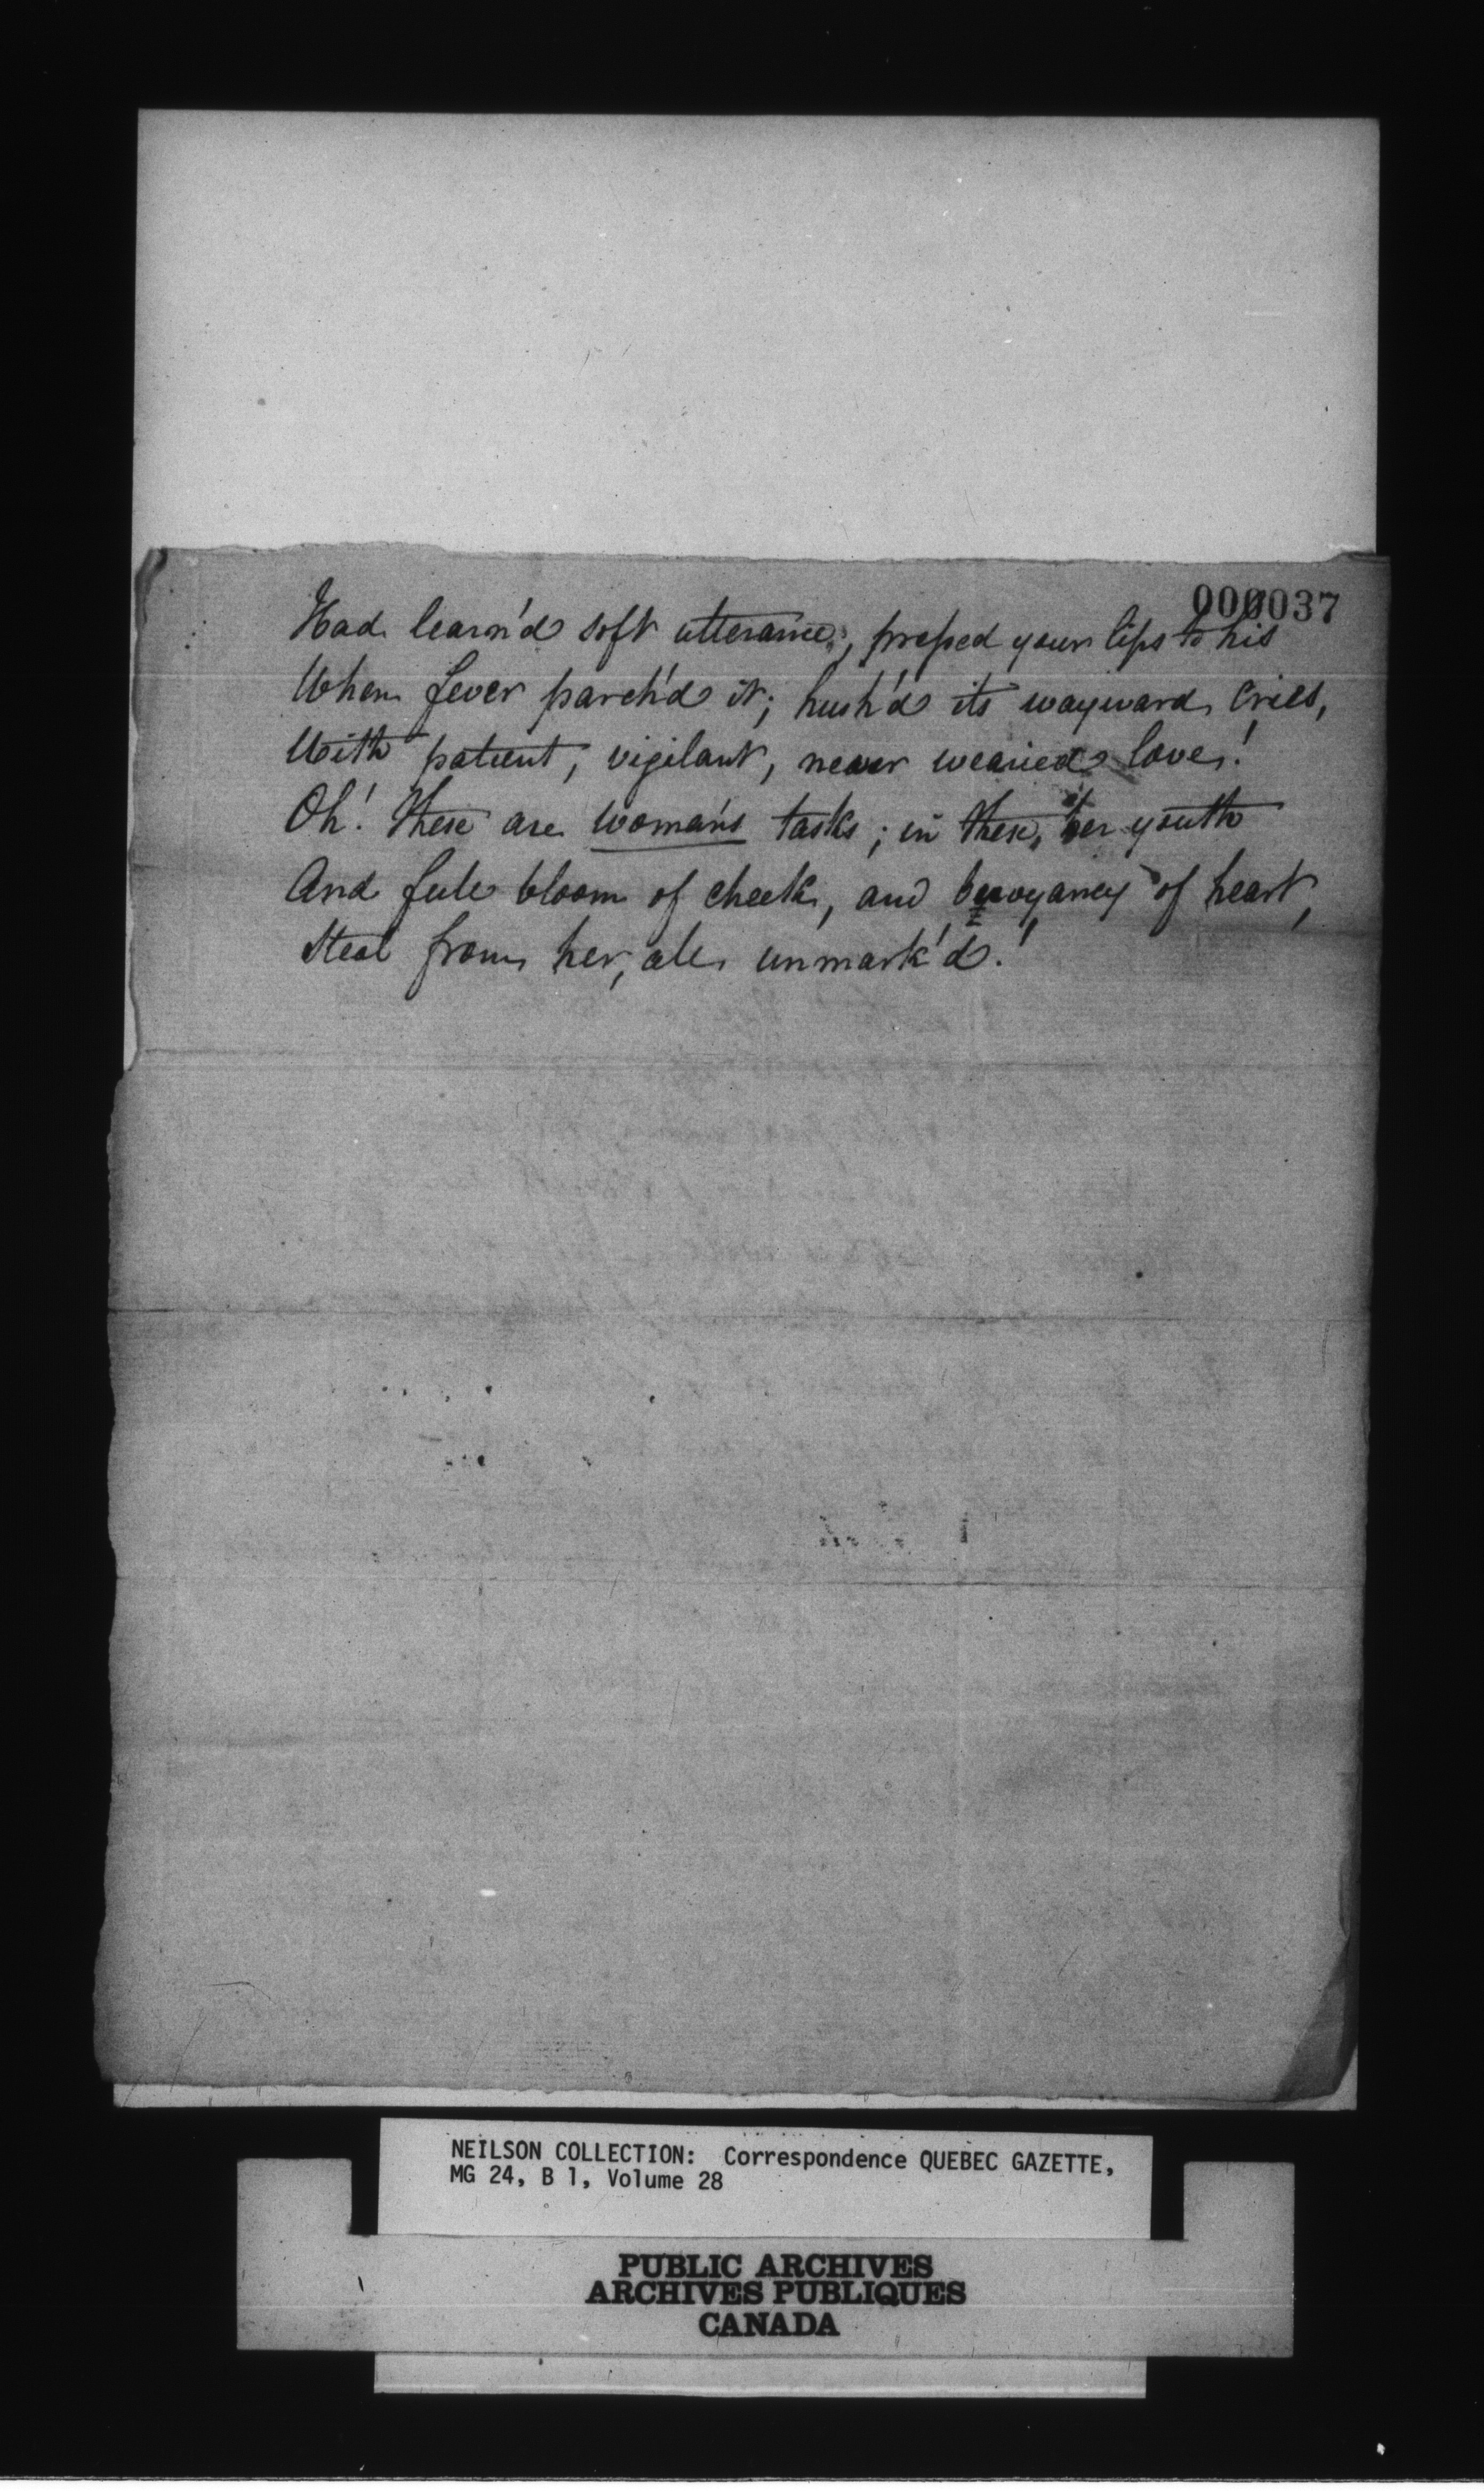 000037
Had learn'd soft utterance; pressed your lips to his
When fever parch'd it; hush'd its wayward cries,
With patient, vigilant, never wearied love!
Oh! these are woman's tasks; in these, her youth
And full bloom of cheek, and buoyancy of heart,
Steal from her, all unmark'd!
NEILSON COLLECTION: Correspondence QUEBEC GAZETTE,
MG 24, B 1, Volume 28
PUBLIC ARCHIVES
ARCHIVES PUBLIQUES
CANADA